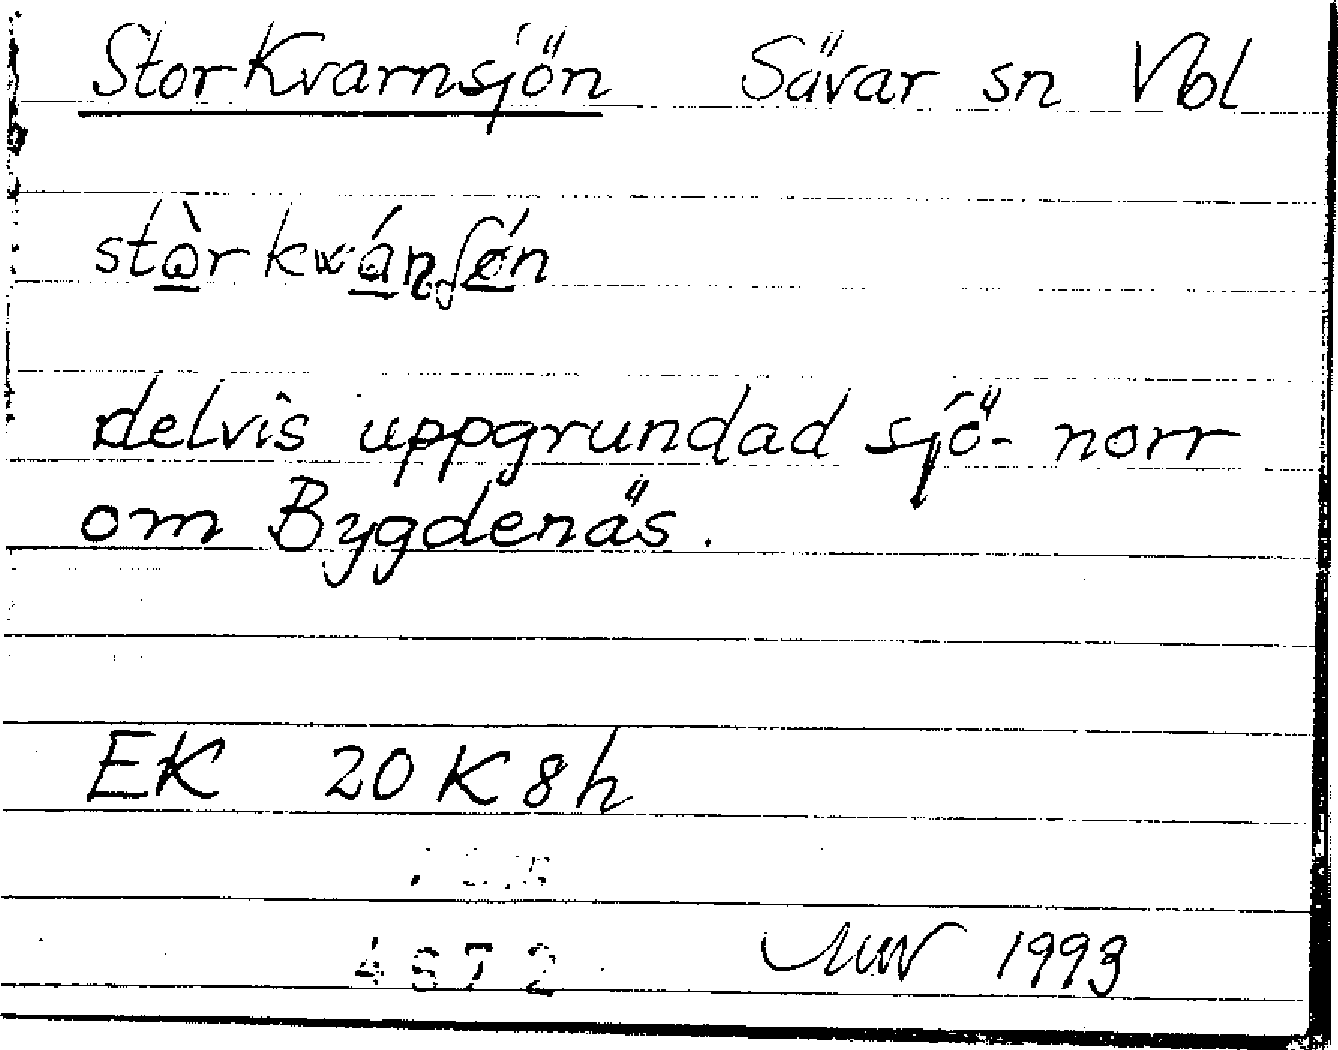 StorKvarnsjön Sävar sn Vbl
delvis uppgrundad sjö norr
om Bygdenäs.
EK 20 K 8h
4672
1993